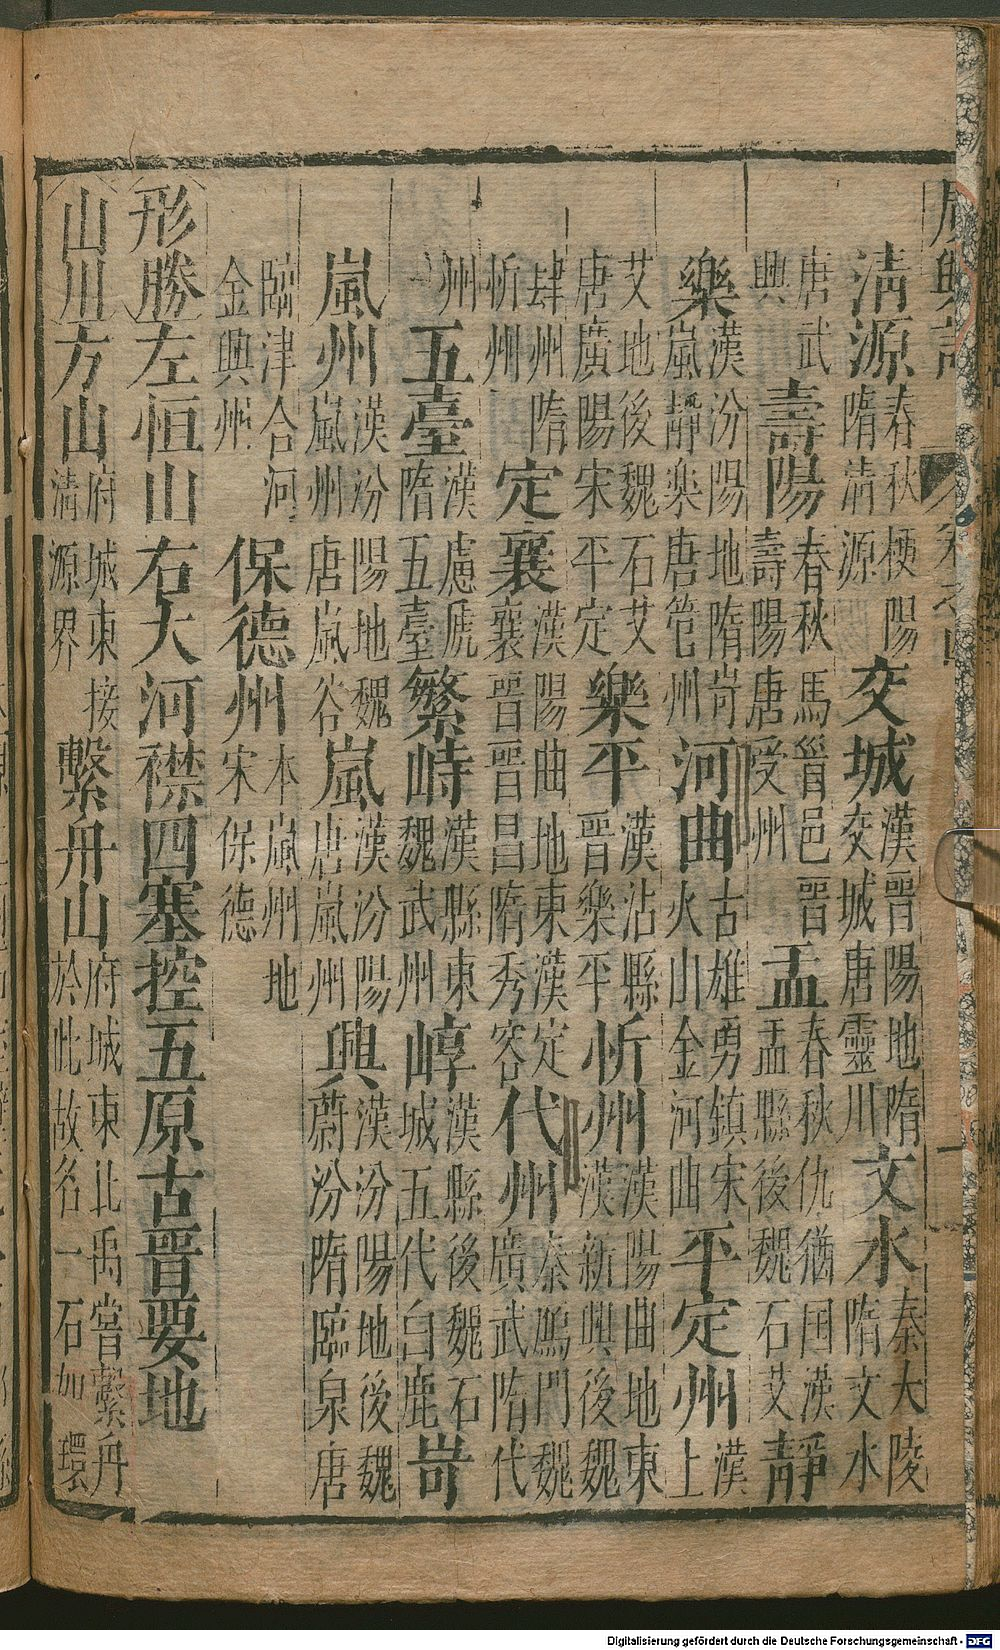 廣輿記 卷之四
清源春秋梗陽隋清源交城漢晋陽地隋交城唐靈川文水秦大陵隋文水
唐武興壽陽春秋馬首邑晋壽陽唐受州盂春秋仇猶囯漢盂縣後魏石艾靜
樂漢汾陽地隋岢嵐靜樂唐管州河曲古雄勇鎮宋火山金河曲平定州漢上
艾地後魏石艾唐廣陽宋平定樂平漢沾縣晋樂平忻州漢陽曲地東漢新興後魏
肆州隋忻州定襄漢陽曲地東漢定襄晋晋昌隋秀容代州秦鴈門魏廣武隋代
州五臺漢慮虒隋五臺繁峙漢縣東魏武州崞漢縣後魏石城五代白鹿岢
嵐州漢汾陽地魏嵐州唐嵐谷嵐漢汾陽唐嵐州興漢汾陽地後魏蔚汾隋臨泉唐
臨津合河金興州保德州本嵐州地宋保德
形勝左恒山右大河襟四塞控五原古晋要地
山川方山府城東接清源界繫舟山府城東北禹嘗繫舟於此故名一石如環
Digitalisierung gefördert durch die Deutsche Forschungsgemeinschaft - DFG